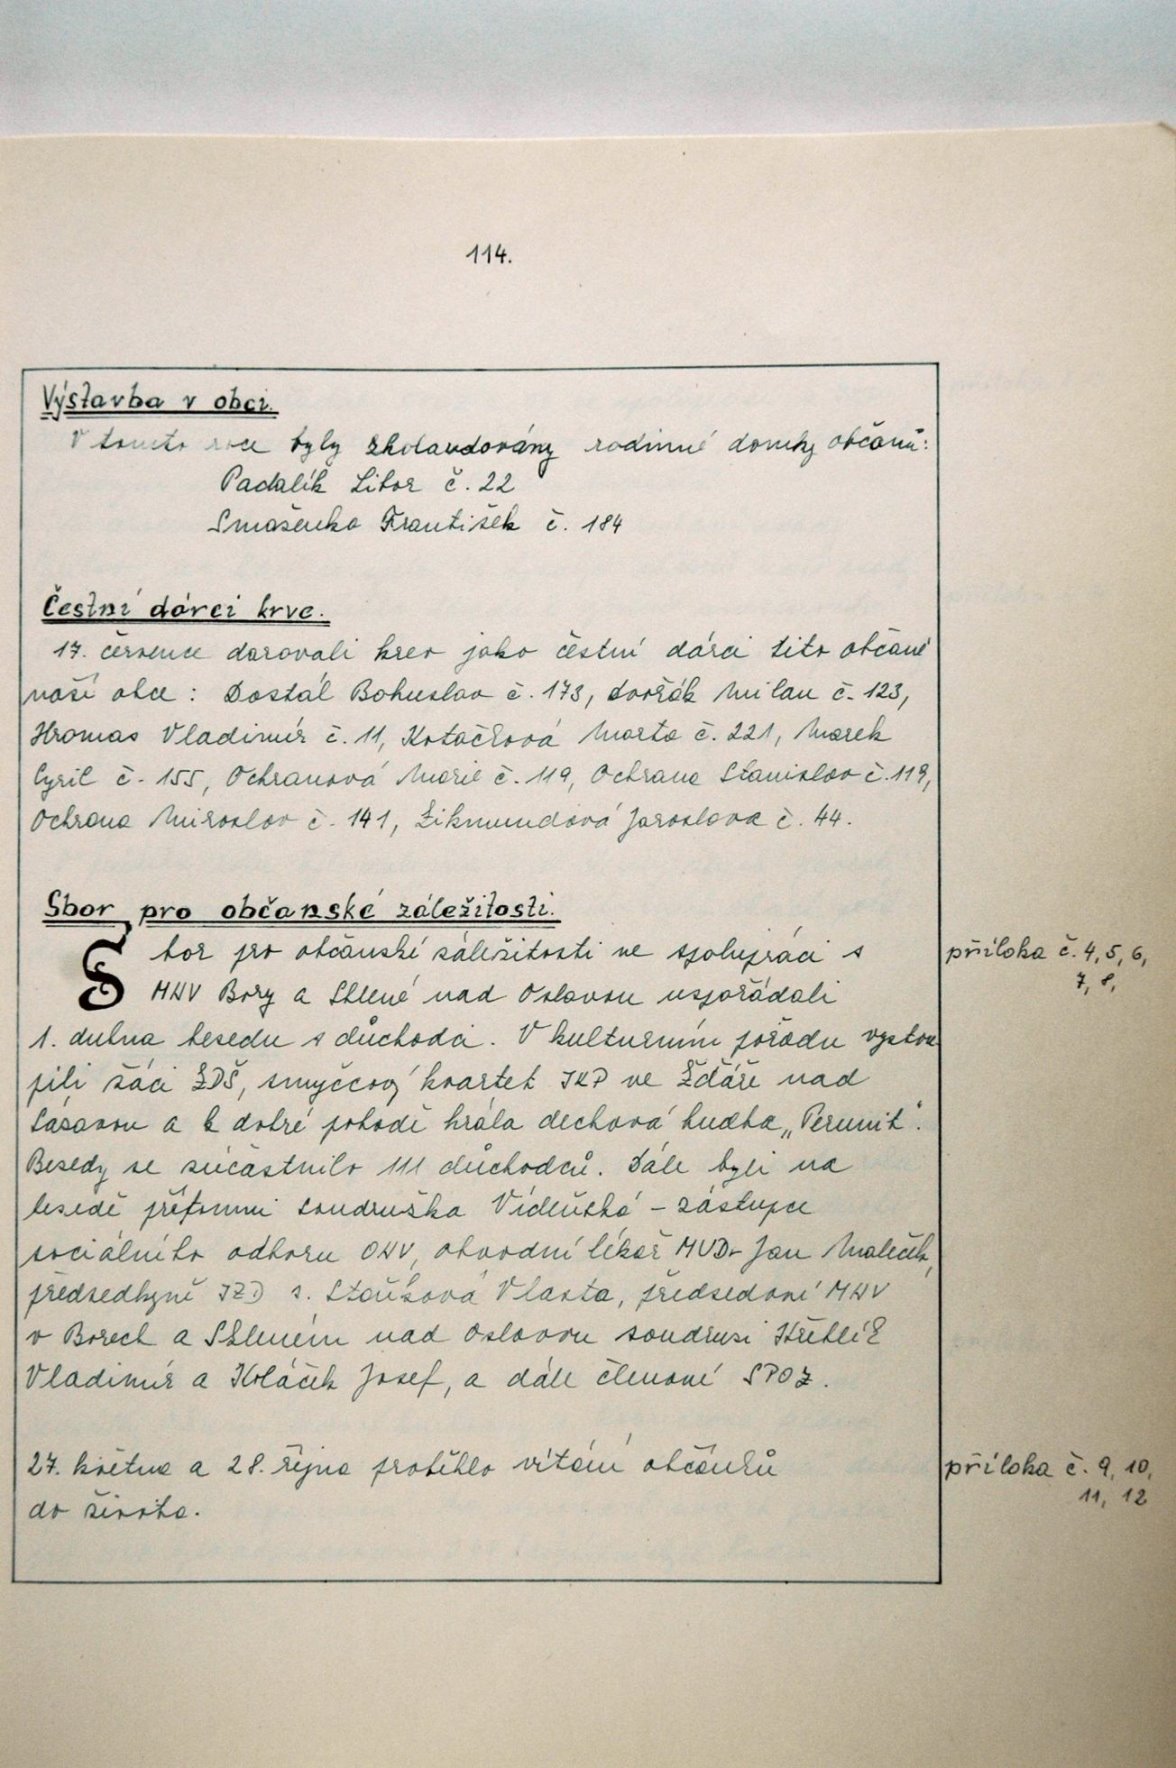 114.
Výstavba v obci.
V tomto roce byly zkolaudovány rodinné domky občanů:
Padalík Libor č. 22
Smaženka František č. 184
Čestní dárci krve.
17. července darovali krev jako čestní dárci tito občané
naší obce: Dostál Bohuslav č. 173, Dvořák Milan č. 123,
Hromas Vladimír č. 11, Kotačková Marta č. 221, Marek
Cyril č. 155, Ochranová Marie č. 119, Ochrana Stanislav č. 119,
Ochrana Miroslav č. 141, Zikmundová Jaroslava č. 44.
Sbor pro občanské záležitosti.
Sbor pro občanské záležitosti ve spolupráci s
příloha č. 4, 5, 6,
7, 8,
MNV Bory a Sklené nad Oslavou uspořádali
1. dubna besedu s důchodci. V kulturním pořadu vystou
pili žáci ZDŠ, smyčcový kvartet JKP ve Žďáře nad
Sázavou a k dobré pohodě hrála dechová hudba „Perunit".
Besedy se zúčastnilo 111 důchodců. Dále byli na
besedě přítomni soudružka Vídeňská - zástupce
sociálního odboru ONV, obvodní lékař MUDr Jan Maleček,
předsedkyně JZD s. Stoušová Vlasta, předsedové MNV
v Borech a Skleném nad Oslavou soudruzi Hřeblíč
Vladimír a Koláček Josef, a dále členové SPOZ.
27. května a 28. října proběhlo vítání občánků
příloha č. 9, 10,
11, 12
do života.